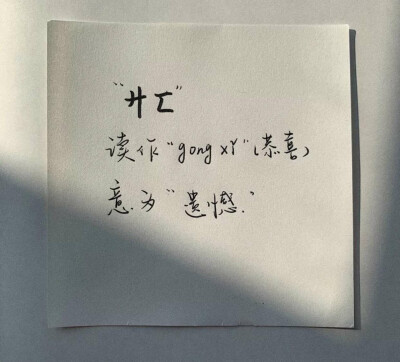 "卄㠪"
读作"gong xǐ"(恭喜)
意为"遗憾."